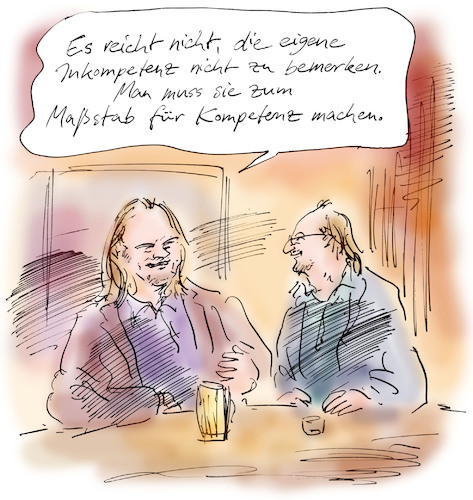 Es reicht nicht, die eigene
Inkompetenz nicht zu bemerken.
Man muss sie zum
Maßstab für Kompetenz machen.